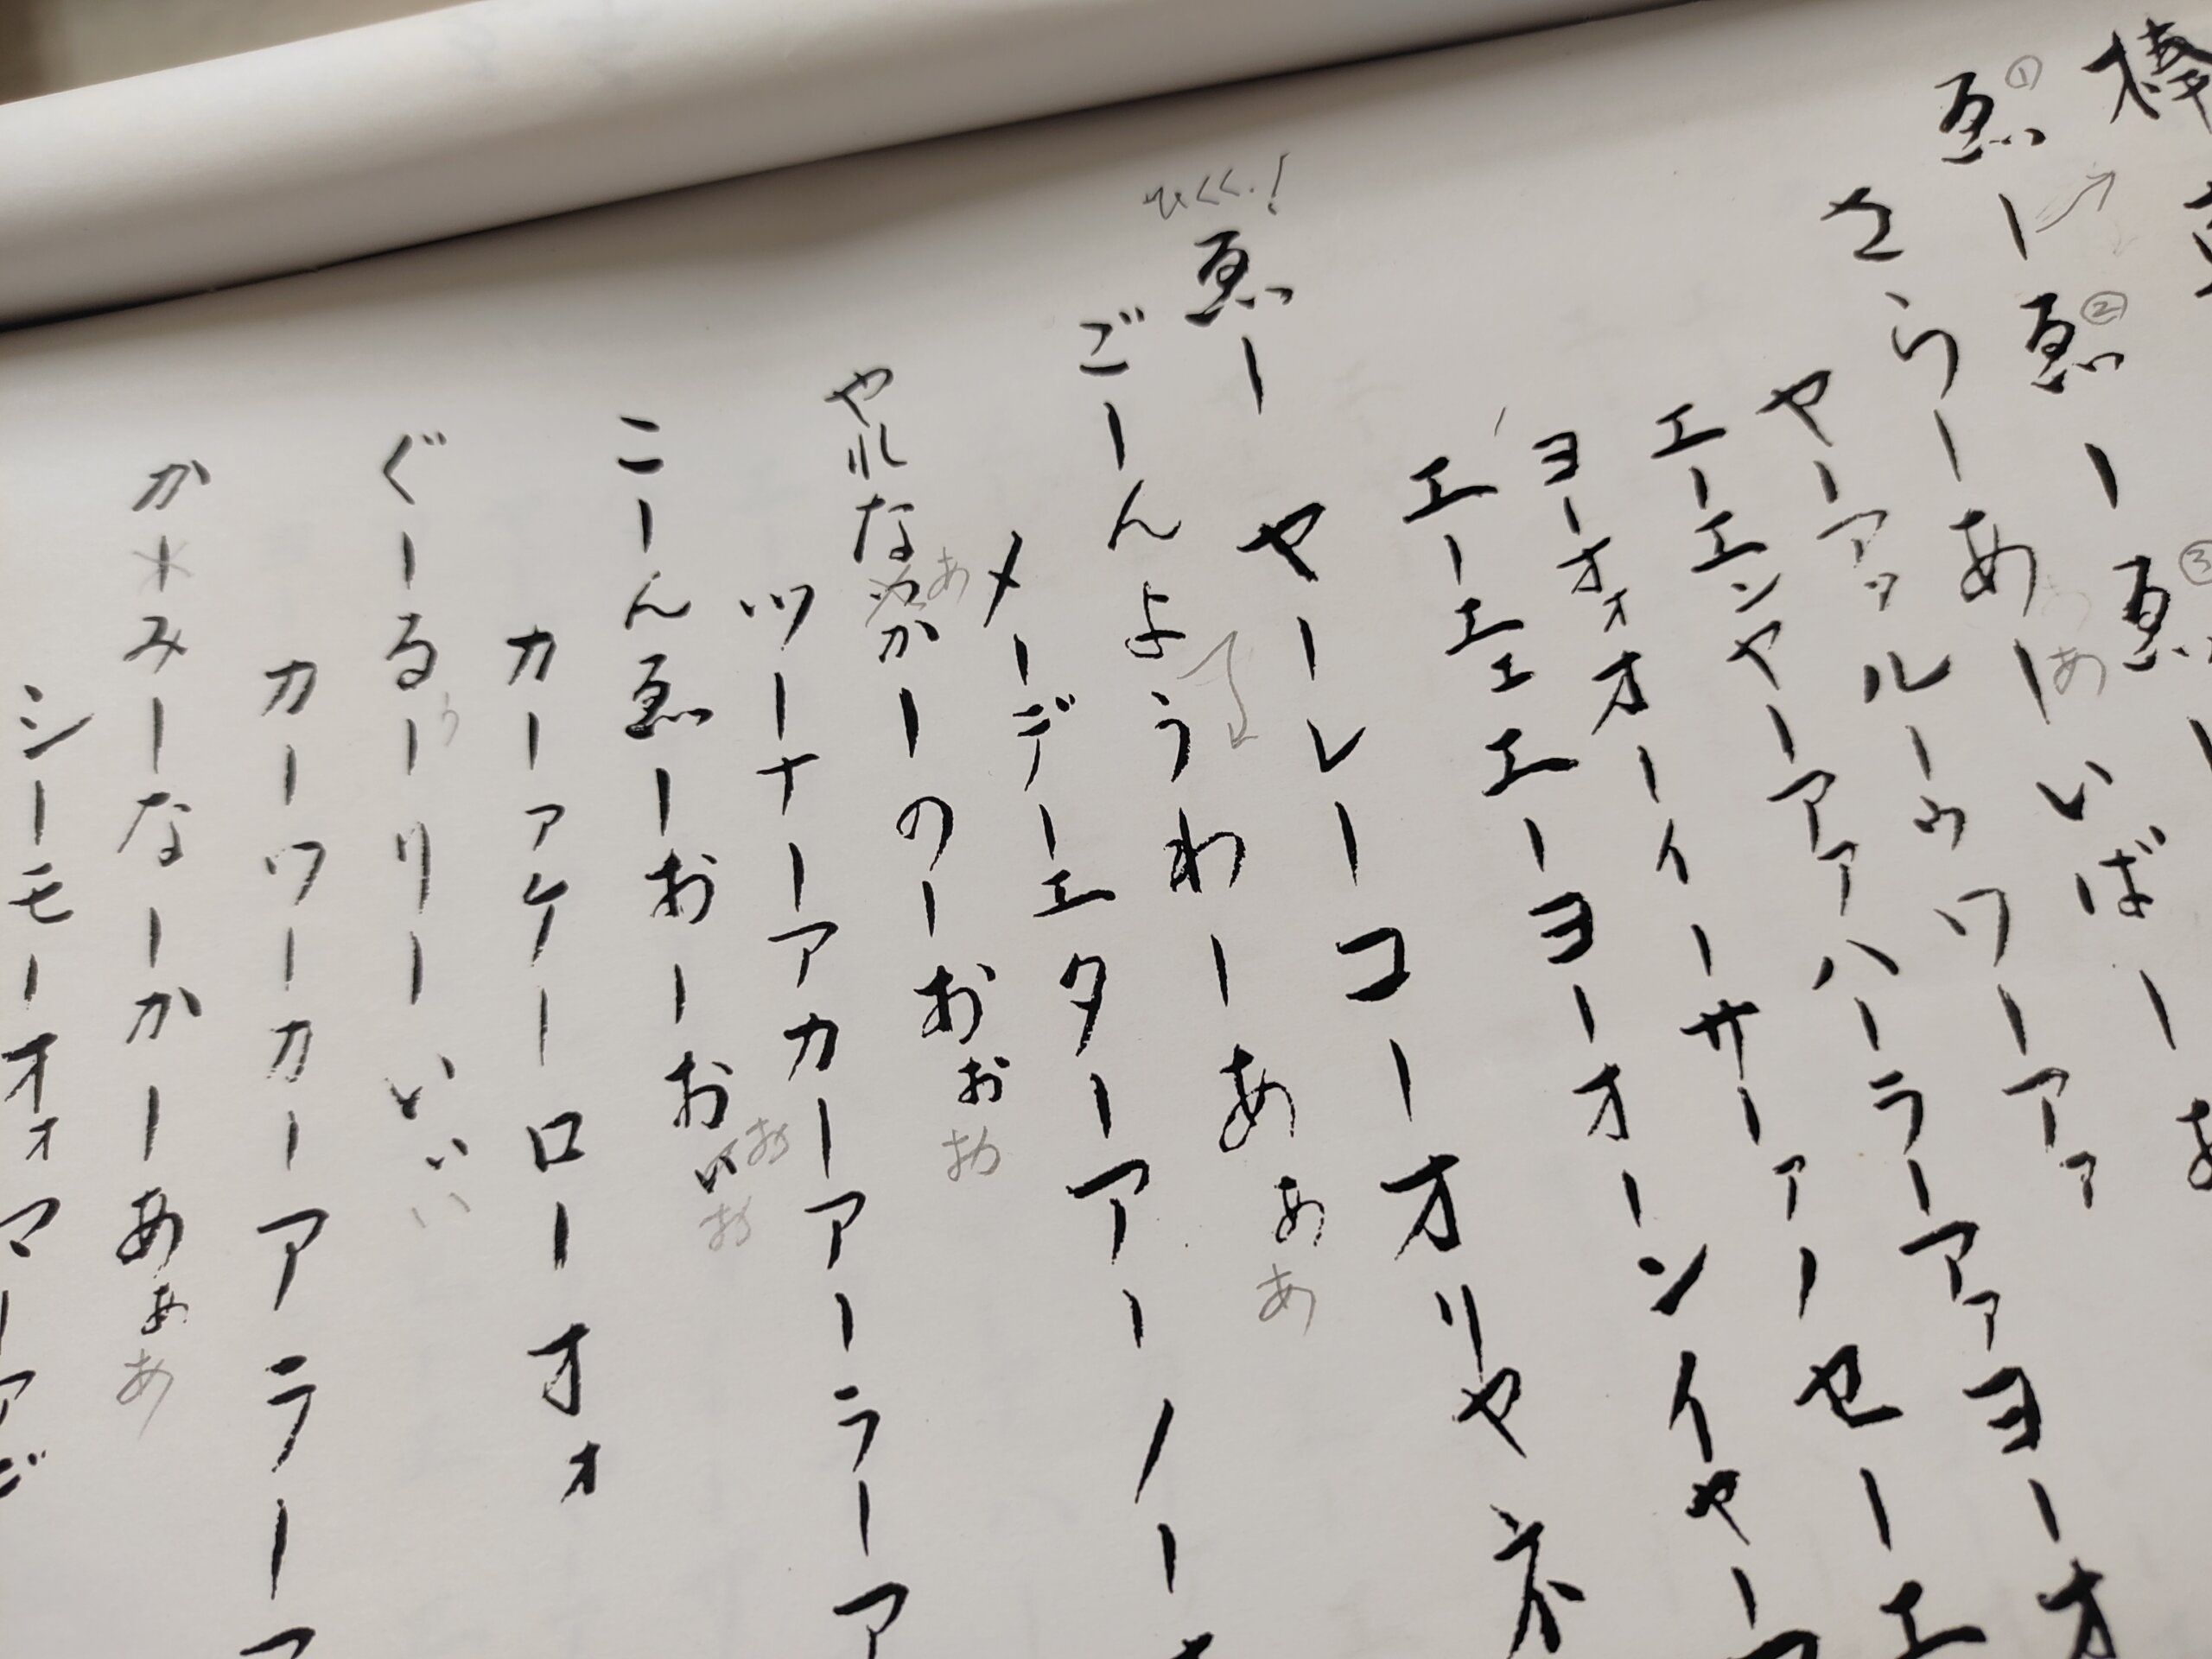 棒
ゑーゑーゑー
① ② ③
さらーあーいばーお
ああ
ヤーアァルーゥワーアァ
エーエンヤーアァハーラーアァヨーオ
ヨーオォオーイーサーァーセーエ
エーエェエーヨーオーンイヤー
ヤーレーコーオリヤネ
びくく!
ゑー
ごーんようわーあぁあ
メーデーエターアーノー
やれなかーのーおぉお
あ
ツーナーアカーアーラーア
こーんゑーおーお
おお
カーァケーローオォ
ぐーるーりーいぃい
う
カーワーカーアラーア
かーみーなーかーあぁあ
シーモーオォマーア